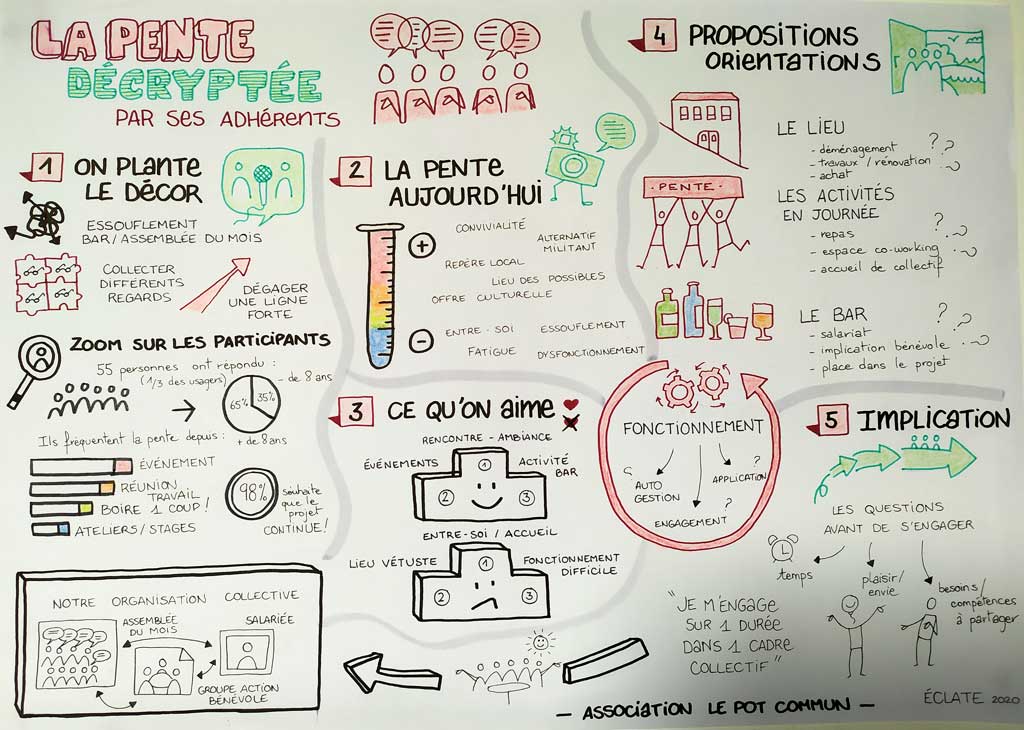 LA PENTE
DÉCRYPTÉE
PAR SES ADHÉRENTS
1 ON PLANTE
LE DÉCOR
ESSOUFLEMENT
BAR / ASSEMBLÉE DU MOIS
COLLECTER
DIFFÉRENTS
REGARDS
DÉGAGER
UNE LIGNE
FORTE
ZOOM SUR LES PARTICIPANTS
55 personnes ont répondu :
(1/3 des usagers)
- de 8 ans
65% 35%
+ de 8 ans
Ils fréquentent la pente depuis :
ÉVÉNEMENT
RÉUNION
TRAVAIL
BOIRE 1 COUP !
ATELIERS / STAGES
98%
souhaite
que le
projet
CONTINUE !
NOTRE ORGANISATION COLLECTIVE
ASSEMBLÉE
DU MOIS
SALARIÉE
GROUPE ACTION
BÉNÉVOLE
2 LA PENTE
AUJOURD'HUI
+
CONVIVIALITÉ
ALTERNATIF
MILITANT
REPÈRE LOCAL
LIEU DES POSSIBLES
OFFRE CULTURELLE
-
ENTRE-SOI
ESSOUFLEMENT
FATIGUE
DYSFONCTIONNEMENT
3 CE QU'ON AIME
RENCONTRE - AMBIANCE
ÉVÉNEMENTS
ACTIVITÉ
BAR
1
2
3
ENTRE-SOI / ACCUEIL
LIEU VÉTUSTE
FONCTIONNEMENT
DIFFICILE
1
2
3
4 PROPOSITIONS
ORIENTATIONS
LE LIEU
- déménagement
- travaux / rénovation
- achat
? ?
PENTE
LES ACTIVITÉS
EN JOURNÉE
- repas
- espace co-working
- accueil de collectif
? ?
LE BAR
- salariat
- implication bénévole
- place dans le projet
? ?
FONCTIONNEMENT
AUTO
GESTION
?
APPLICATION
?
ENGAGEMENT
5 IMPLICATION
LES QUESTIONS
AVANT DE S'ENGAGER
temps
plaisir/
envie
besoins/
compétences
à partager
"JE M'ENGAGE
SUR 1 DURÉE
DANS 1 CADRE
COLLECTIF"
— ASSOCIATION LE POT COMMUN —
ÉCLATE 2020